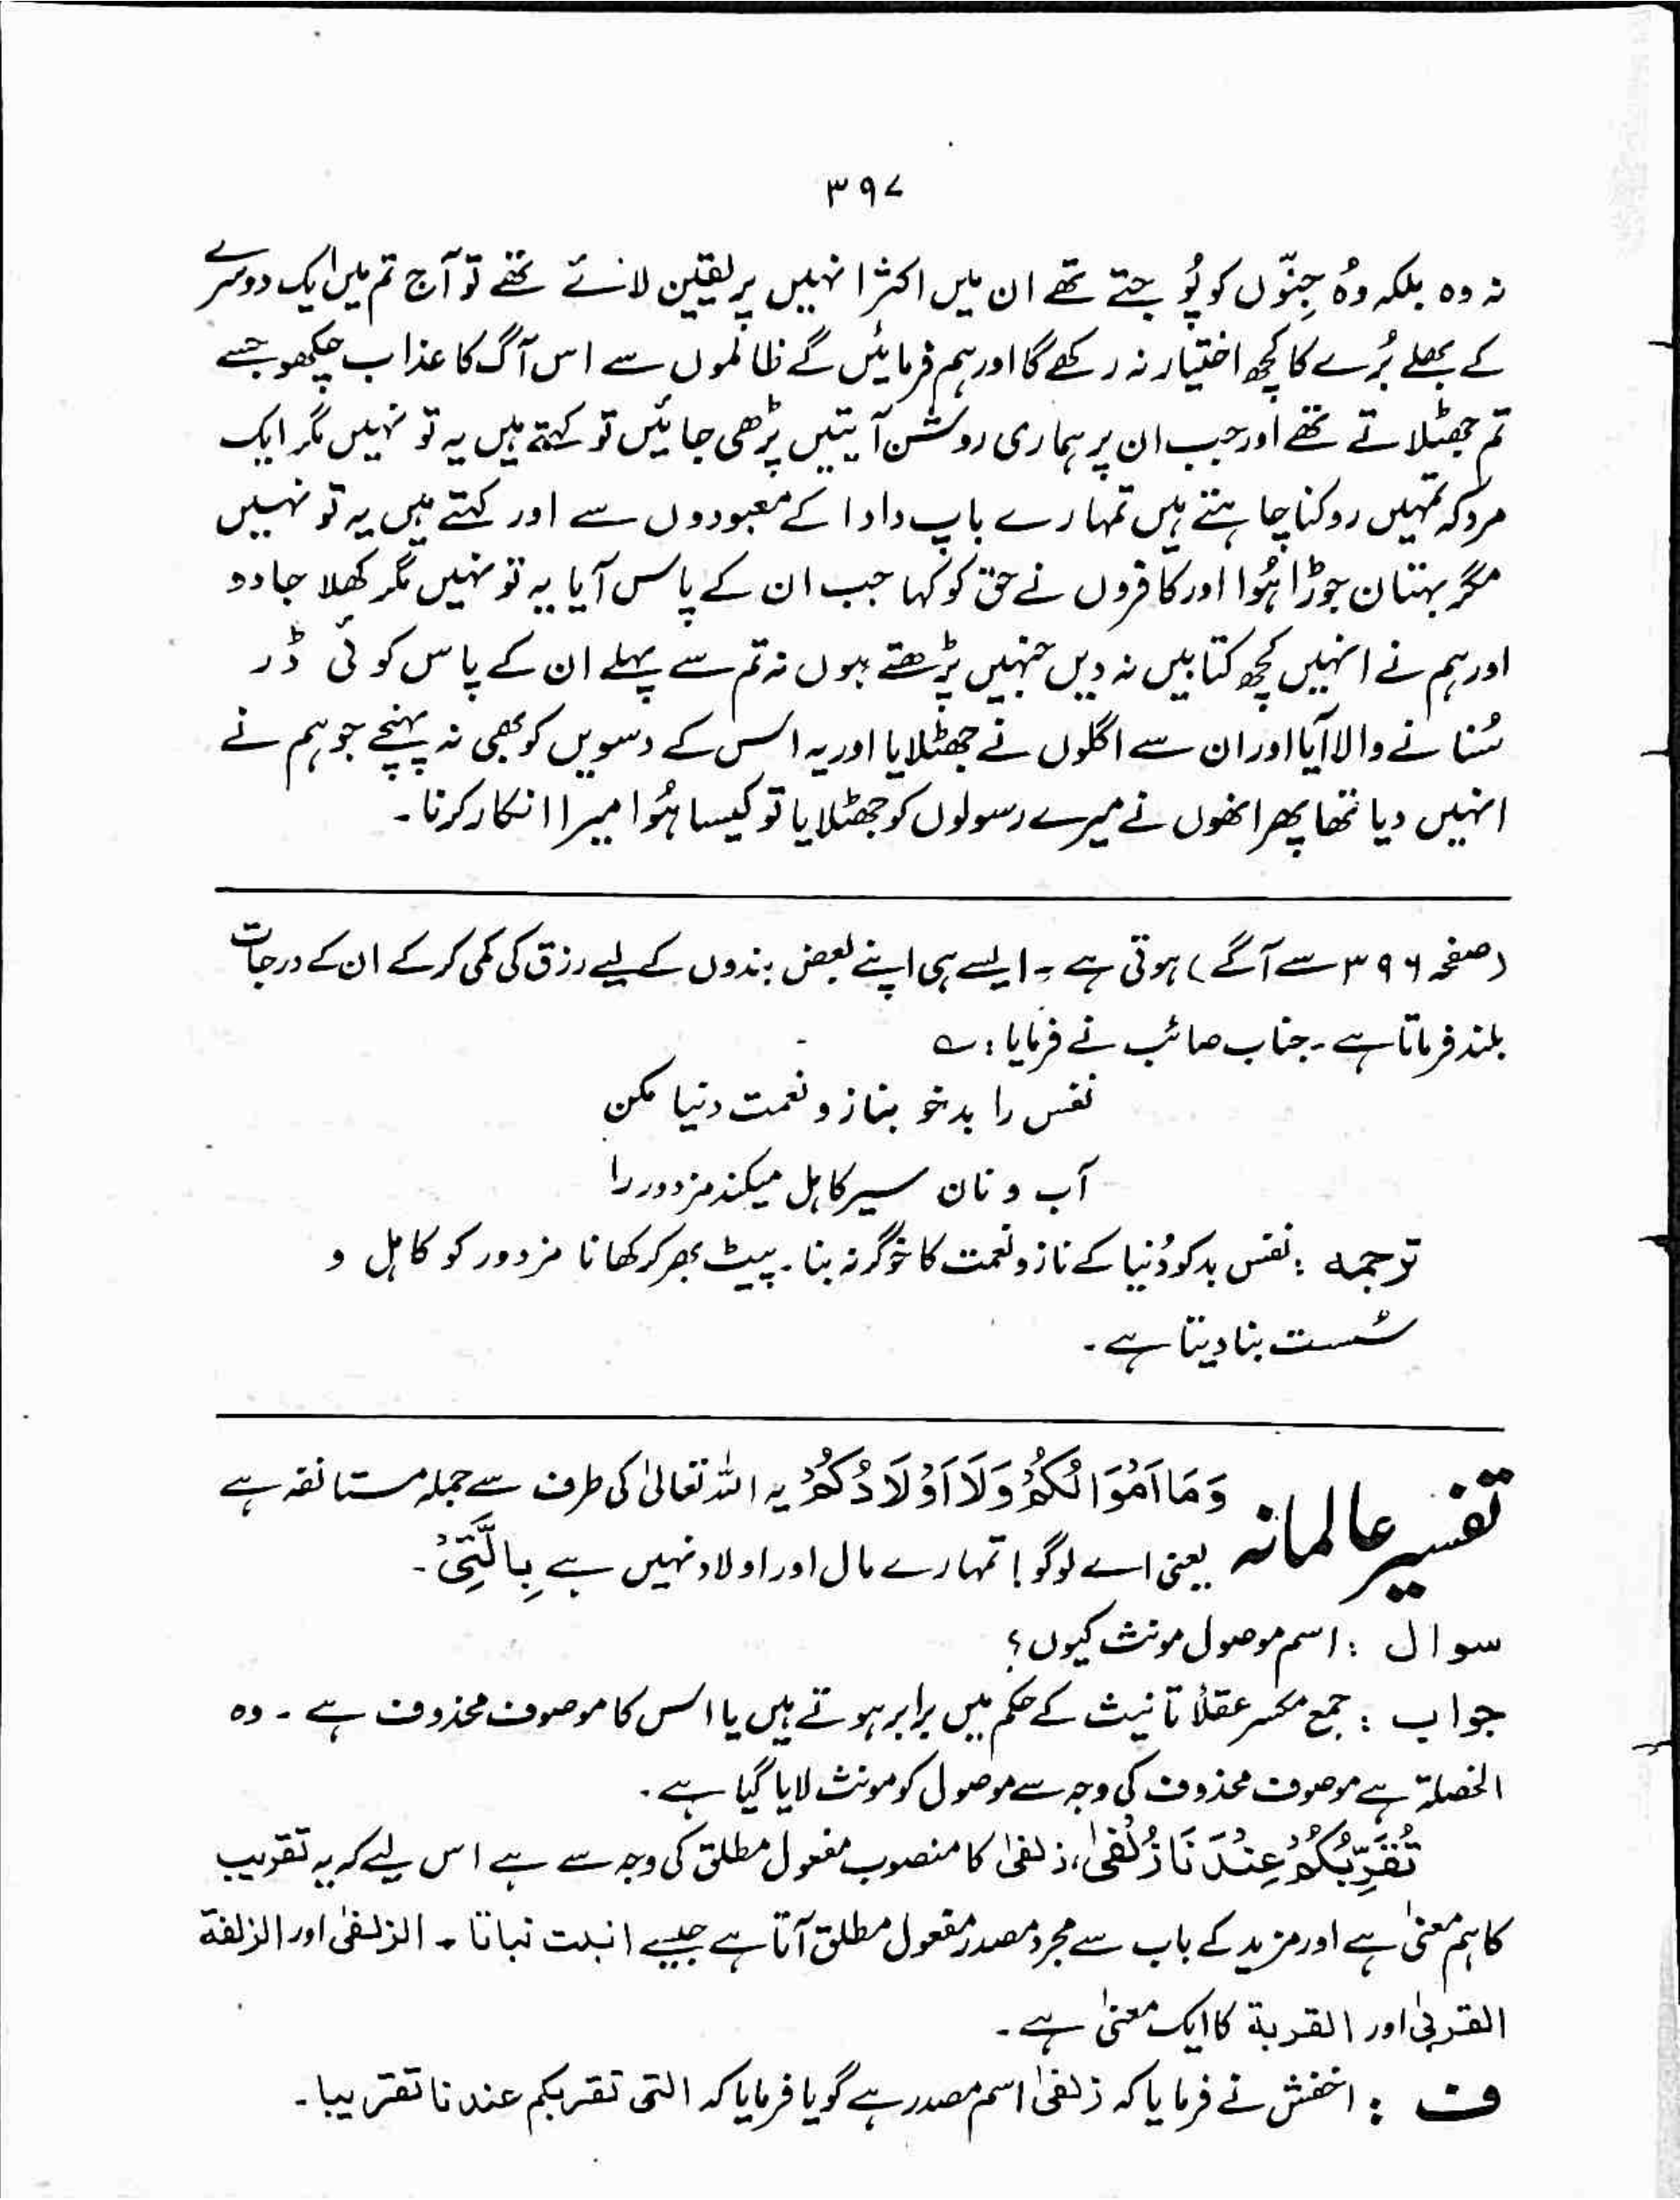 ۳۹۷
نہ وہ بلکہ وہُ جِنّوں کو پُوجتے تھے ان میں اکثر انہیں پر یقین لائے تھے تو آج تم میں ایک دوسرے
کے بھلے بُرے کا کچھ اختیار نہ رکھے گا اور ہم فرمائیں گے ظالموں سے اس آگ کا عذاب چکھو جسے
تم جھٹلاتے تھے اور جب ان پر ہماری روشن آیتیں پڑھی جائیں تو کہتے ہیں یہ تو نہیں مگر ایک
مرد کہ تمہیں روکنا چاہتے ہیں تمہارے باپ دادا کے معبودوں سے اور کہتے ہیں یہ تو نہیں
مگر بہتان جوڑا ہُوا اور کافروں نے حق کو کہا جب ان کے پاس آیا یہ تو نہیں مگر کھلا جادو
اور ہم نے انہیں کچھ کتابیں نہ دیں جنہیں پڑھتے ہوں نہ تم سے پہلے ان کے پاس کوئی ڈر
سُنانے والا آیا اور ان سے اگلوں نے جھٹلایا اور یہ اس کے دسویں کو بھی نہ پہنچے جو ہم نے
انہیں دیا تھا پھر انھوں نے میرے رسولوں کو جھٹلایا تو کیسا ہُوا میرا انکار کرنا۔
(صفحہ ۳۹۶ سے آگے) ہوتی ہے۔ ایسے ہی اپنے بعض بندوں کے لیے رزق کی کمی کر کے ان کے درجات
بلند فرماتا ہے۔ جناب صائب نے فرمایا: ؎
نفس را بدخو بناز و نعمت دنیا مکن
آب و نان سیر کاہل میکند مزدور را
ترجمہ : نفس بد کو دُنیا کے ناز و نعمت کا خوگر نہ بنا۔ پیٹ بھر کر کھانا مزدور کو کاہل و
سُست بنا دیتا ہے۔
تفسیر عالمانہ وَمَا اَمْوَالُكُمْ وَلَا اَوْلَادُكُمْ یہ اللہ تعالیٰ کی طرف سے جملہ مستانفہ ہے
یعنی اے لوگو! تمہارے مال اور اولاد نہیں ہے بِالَّتِیْ۔
سوال : اسم موصول مونث کیوں؟
جواب : جمع مکسر عقلاً تانیث کے حکم میں برابر ہوتے ہیں یا اس کا موصوف محذوف ہے۔ وہ
الخصلۃ ہے موصوف محذوف کی وجہ سے موصول کو مونث لایا گیا ہے۔
تُقَرِّبُكُمْ عِنْدَنَا زُلْفٰی، زلفیٰ کا منصوب مفعول مطلق کی وجہ سے ہے اس لیے کہ یہ تقریب
کا ہم معنیٰ ہے اور مزید کے باب سے مجرد مصدر مفعول مطلق آتا ہے جیسے انبت نباتا۔ الزلفیٰ اور الزلفة
القربیٰ اور القربة کا ایک معنیٰ ہے۔
ف : اخفش نے فرمایا کہ زلفیٰ اسم مصدر ہے گویا فرمایا کہ التی تقربکم عندنا تقریبا۔